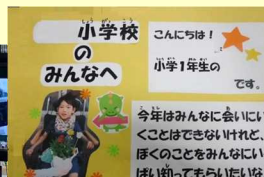 小学校
の
みんなへ
こんにちは！
小学1年生の
です。
今年はみんなに会いにい
くことはできないけれど、
ぼくのことをみんなにい
ぱい知ってもらいたいな